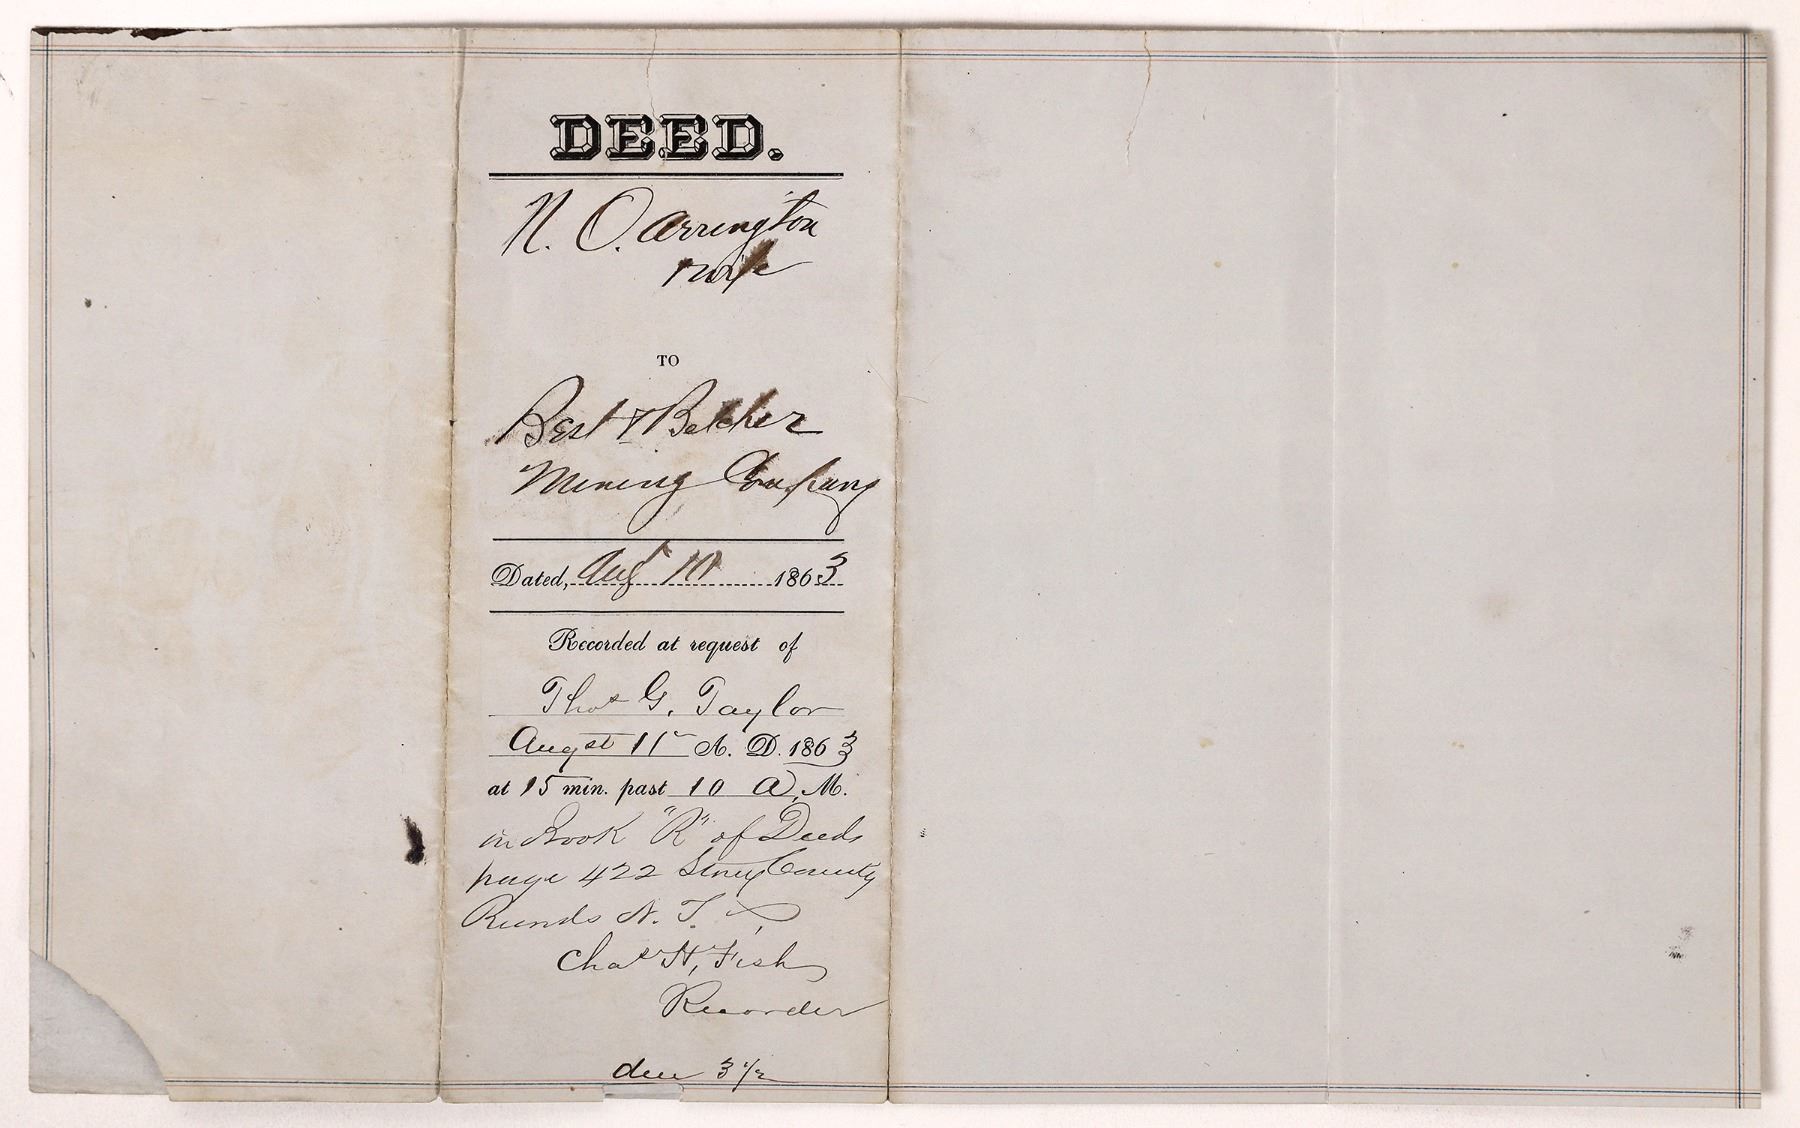 DEED.
N. O. Arrington
& wife
TO
Best & Belcher
Mining Company
Dated, Augt 10 1863
Recorded at request of
Thos G. Taylor
Augst 11 A. D. 1863
at 15 min. past 10 A. M.
in Book "R" of Deeds
page 422 Storey County
Records N. T.
Chas H, Fish
Recorder
due 3 1/2